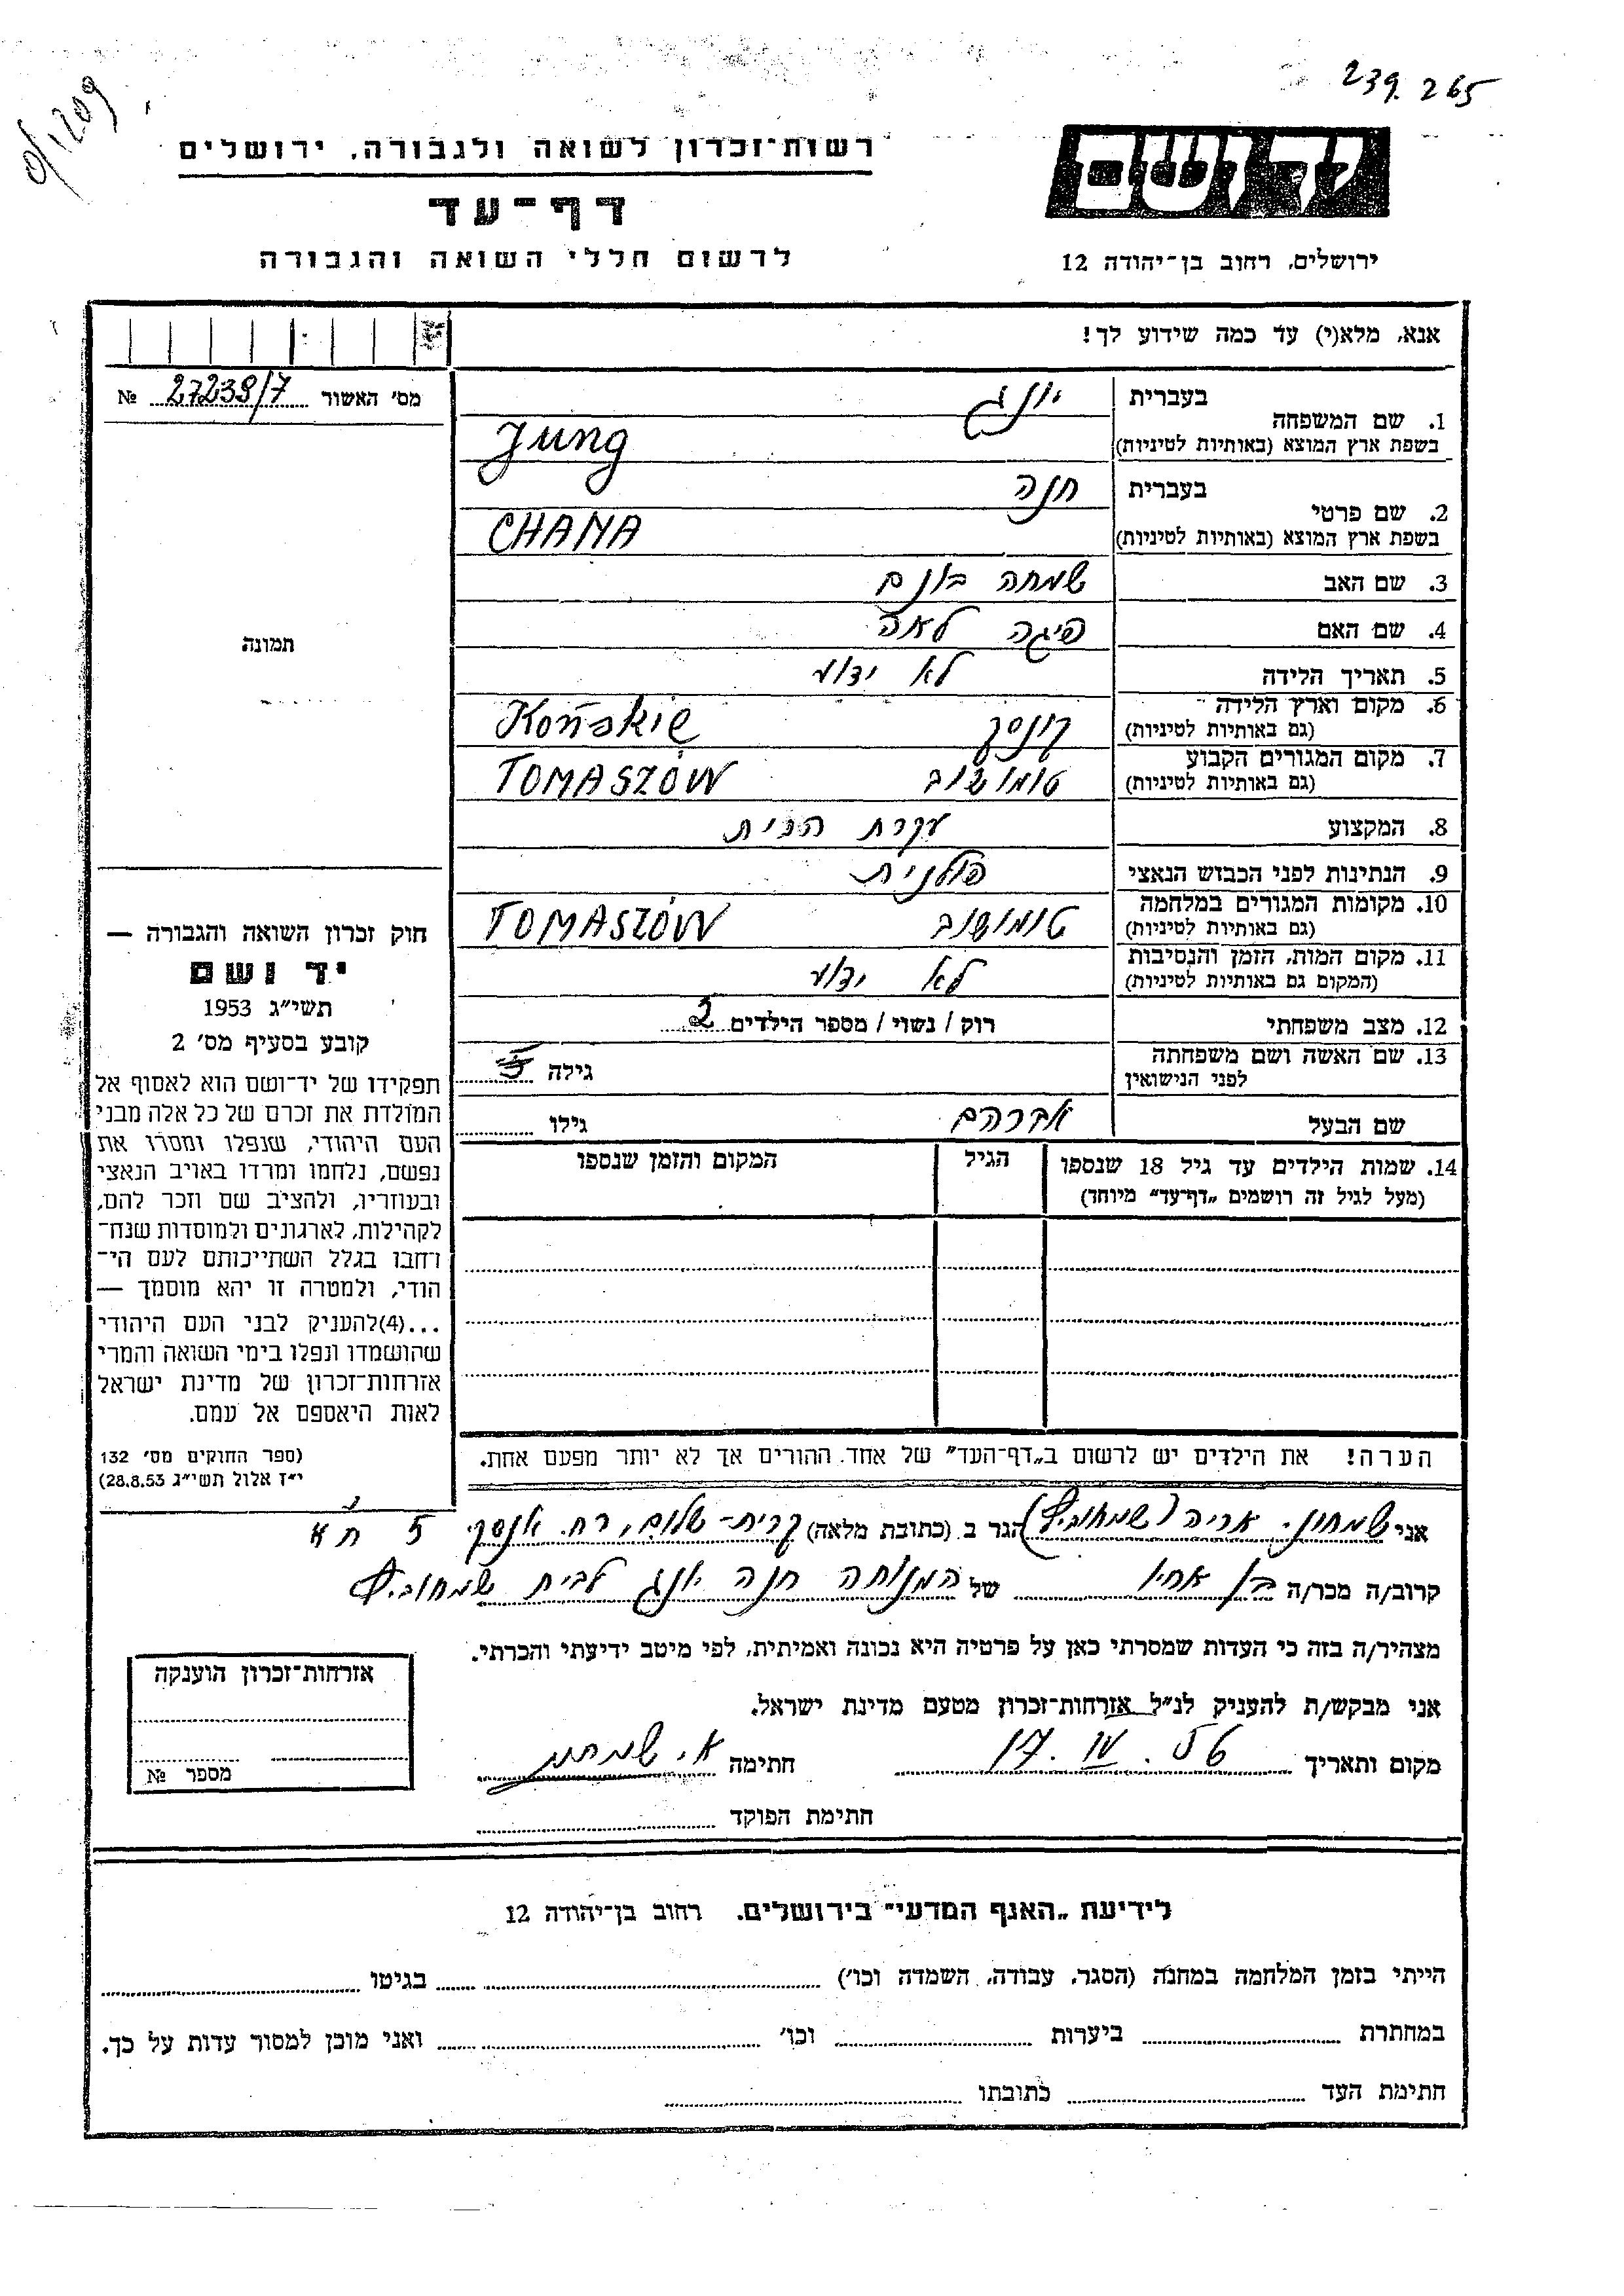 239.265
0/1209
רשות־זכרון לשואה ולגבורה, ירושלים
דף־עד
לרשום חללי השואה והגבורה
יד ושם
ירושלים, רחוב בן־יהודה 12
אנא, מלא(י) עד כמה שידוע לך!
מס' האשור 27238/7 №
תמונה
1. שם המשפחה
בעברית יונג
בשפת ארץ המוצא (באותיות לטיניות) Jung
2. שם פרטי
בעברית חנה
בשפת ארץ המוצא (באותיות לטיניות) CHANA
3. שם האב שמחה בונם
4. שם האם פיגה לאה
5. תאריך הלידה לא ידוע
6. מקום וארץ הלידה (גם באותיות לטיניות) קונסק Końskie
7. מקום המגורים הקבוע (גם באותיות לטיניות) טומושוב TOMASZÓW
8. המקצוע עקרת הבית
9. הנתינות לפני הכבוש הנאצי פולנית
10. מקומות המגורים במלחמה (גם באותיות לטיניות) טומושוב TOMASZÓW
11. מקום המות, הזמן והנסיבות (המקום גם באותיות לטיניות) לא ידוע
12. מצב משפחתי רוק / נשוי / מספר הילדים
13. שם האשה ושם משפחתה לפני הנישואין גילה
שם הבעל אברהם גילו
14. שמות הילדים עד גיל 18 שנספו (מעל לגיל זה רושמים „דף־עד" מיוחד)
הגיל
המקום והזמן שנספו
חוק זכרון השואה והגבורה —
יד ושם
תשי"ג 1953
קובע בסעיף מס' 2
תפקידו של יד־ושם הוא לאסוף אל
המולדת את זכרם של כל אלה מבני
העם היהודי, שנפלו ומסרו את
נפשם, נלחמו ומרדו באויב הנאצי
ובעוזריו, ולהציב שם וזכר להם,
לקהילות, לארגונים ולמוסדות שנח־
רחבו בגלל השתייכותם לעם הי־
הודי, ולמטרה זו יהא מוסמך —
...(4)להעניק לבני העם היהודי
שהושמדו ונפלו בימי השואה והמרי
אזרחות־זכרון של מדינת ישראל
לאות היאספם אל עמם.
(ספר החוקים מס' 132
י"ז אלול תשי"ג 28.8.53)
הערה! את הילדים יש לרשום ב„דף־העד" של אחד ההורים אך לא יותר מפעם אחת.
אני שמחוני אריה (שמחוביץ) הגר ב (כתובת מלאה) קרית-שלום, רח. אנסקי 5
קרוב/ה מכר/ה בן אחיו של המנוחה חנה יונג לבית שמחוביץ
מצהיר/ה בזה כי העדות שמסרתי כאן על פרטיה היא נכונה ואמיתית, לפי מיטב ידיעתי והכרתי.
אני מבקש/ת להעניק לנ"ל אזרחות־זכרון מטעם מדינת ישראל.
מקום ותאריך 17. IV. 56 חתימה א. שמחוני
חתימת הפוקד
אזרחות־זכרון הוענקה
מספר №
לידיעת „האגף המדעי" בירושלים, רחוב בן־יהודה 12
הייתי בזמן המלחמה במחנה (הסגר, עבודה, השמדה וכו') בגיטו
במחתרת ביערות וכו' ואני מוכן למסור עדות על כך.
חתימת העד כתובתו